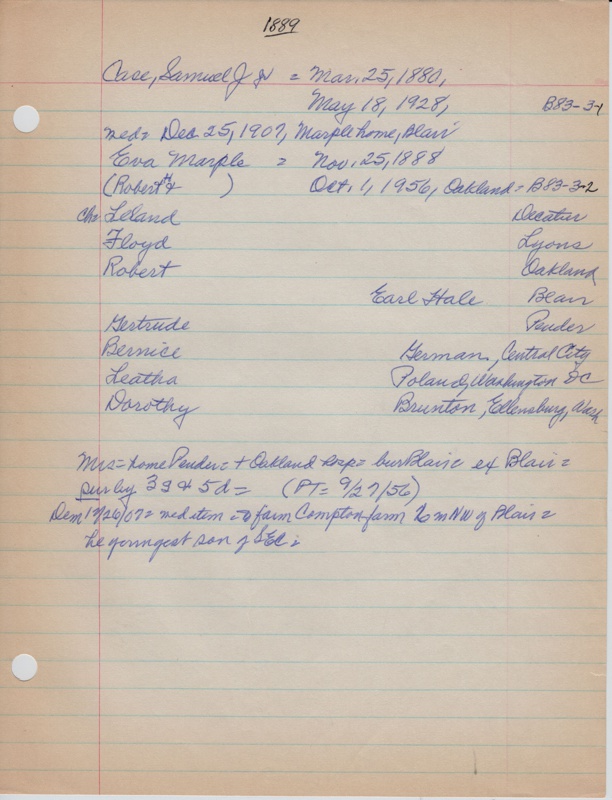 1889
Case, Samuel J Jr = Mar. 25, 1880,
May 18, 1928, B83-3-1
med = Dec 25, 1907, Marple home, Blair
Eva Marple = Nov. 25, 1888
(Robert + ) Oct. 1, 1956, Oakland = B83-3-2
ch = Leland Decatur
Floyd Lyons
Robert Oakland
Earl Hale Blair
Gertrude Pender
Bernice German, Central City
Leatha Poland, Washington DC
Dorothy Brunton, Ellensburg, Wash
Mrs = home Pender = + Oakland hosp = bur Blair = ex Blair =
sur by 3s + 5d = (PT = 9/27/56)
Dem 12/26/07 = med item = to farm Compton farm 6 m NW of Blair =
he youngest son of SEC =